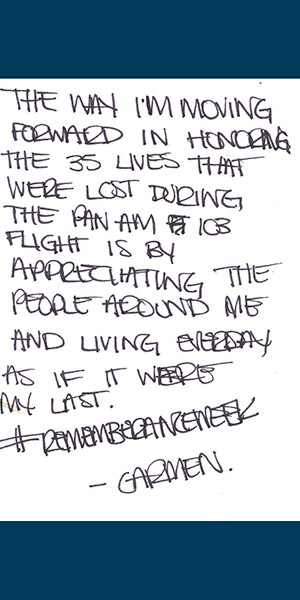 THE WAY I'M MOVING
FORWARD IN HONORING
THE 35 LIVES THAT
WERE LOST DURING
THE PAN AM 103
FLIGHT IS BY
APPRECIATING THE
PEOPLE AROUND ME
AND LIVING EVERDAY
AS IF IT WERE
MY LAST.
#REMEMBERANCEWEEK
- CARMEN.